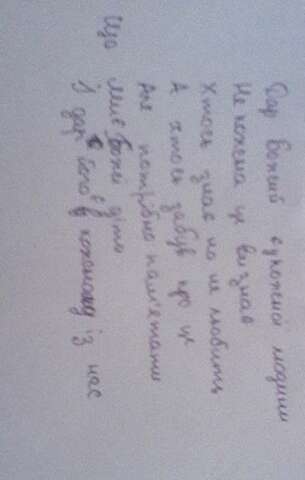 Дар Божий в кожної людини
Не кожна це визнав
Хтось знає но не любить
А хтось забув про це
Але потрібно пам'етати
Що
Ми є Божи діти
І дар його є в кожному із нас